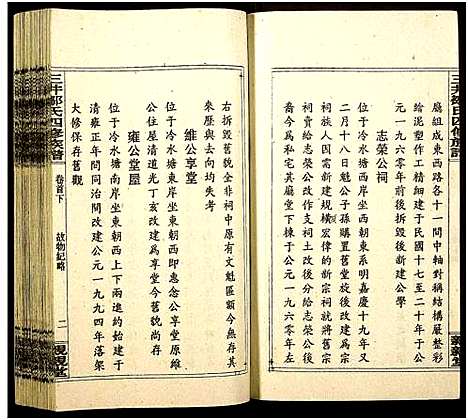 三井鄒氏四修族譜
廳組成東西路各十一間中軸對稱結構嚴整彩
繪泥塑作工精細建于民國十七至二十年于公
元一九六零年初拆毀改作新建公學
志榮公祠
位于冷水塘新屋坐西朝東系明嘉慶十九年又
二月十八日魁公子孫購置舊堂旋後改建為公
祠族人四日需新建規模宏偉的新宗祠就將舊
祠賣給志榮公支下為祠後分給志榮公支下
克虎兄弟私宅其廳堂下棟于一九六零年左
右拆毀舊貌全非祠中原有文魁區額今無存其
來歷與去向均失考
維公享堂
位于冷水塘南岸坐東朝西即惠念公享堂原維
公住屋清道光丁亥改建為享堂今舊貌尚存
雍公堂屋
位于冷水塘南岸坐東朝西上下兩進約始建于
清雍正年間同治間改建公元一九九四年落架
大修保存舊觀
三井鄒氏四修族譜
卷首下
故物紀略
二
親親堂